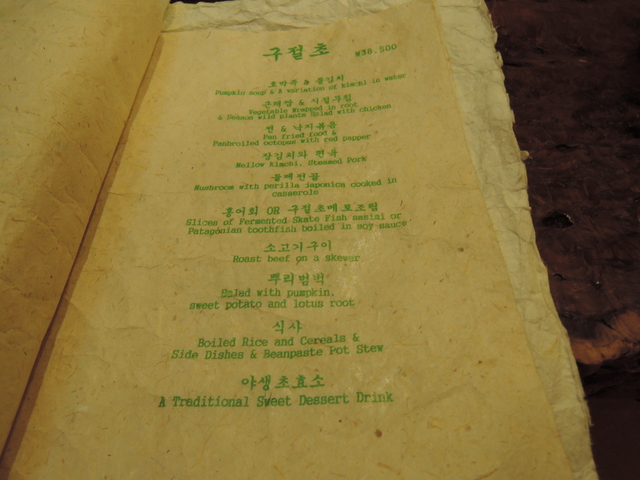 구절초 ₩38,500
호박죽 & 물김치
Pumpkin soup & A variation of Kimchi in water
근채쌈 & 시절무침
Vegetable Wrapped in root
& Season wild plants Salad with chicken
전 & 낙지볶음
Pan fried food &
Panbroiled octopus with red pepper
장김치와 편육
Mellow kimchi, Steamed Pork
들깨전골
Mushroom with perilla japonica cooked in
casserole
홍어회 OR 구절초메로조림
Slices of Fermented Skate Fish sasimi or
Patagonian toothfish boiled in soy sauce
소고기구이
Roast beef on a skewer
뿌리범벅
Salad with pumpkin,
sweet potato and lotus root
식사
Boiled Rice and Cereals &
Side Dishes & Beanpaste Pot Stew
야생초효소
A Traditional Sweet Dessert Drink